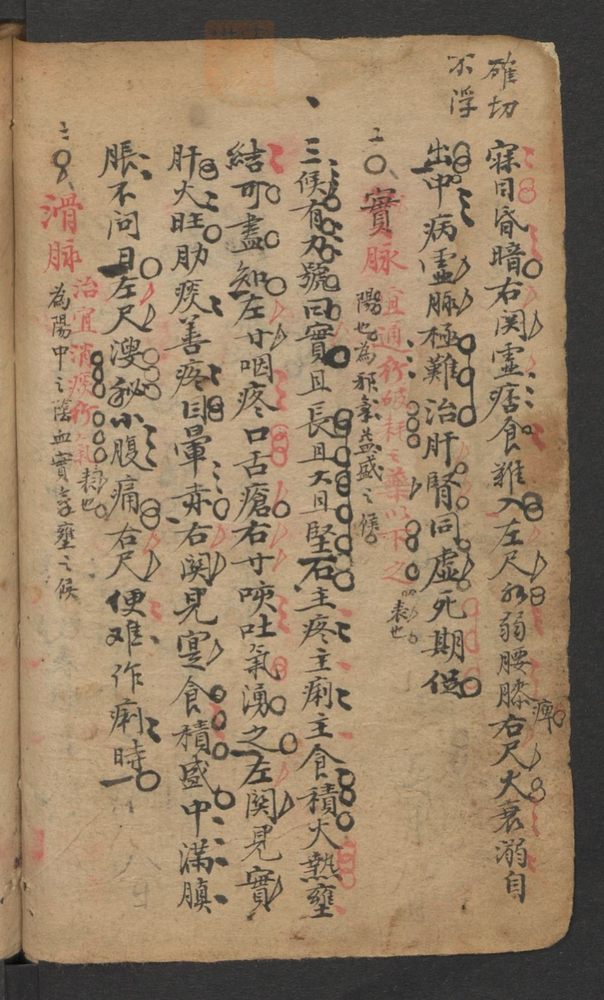 確切
不浮
寐目昏暗右関虛痞食難入左尺水弱腰膝痺右尺火衰溺自
出中病虛脉極難治肝腎同虛死期促
二〇、實脉宜通行破耗之藥以下之
陽也為邪氣盛之候表也
三候有力號曰實且長且大且堅石主疼主痢主食積火熱壅
結可盡知左寸咽疼口舌瘡右寸咳吐氣湧之左関見實
肝火旺肋痰善疼目暈赤右関見寔食積盛中滿䐜
脹不問日左尺溲秘小腹痛右尺便难作痢時
滑脉治宜消痰行氣
為陽中之陰血實氣壅之候